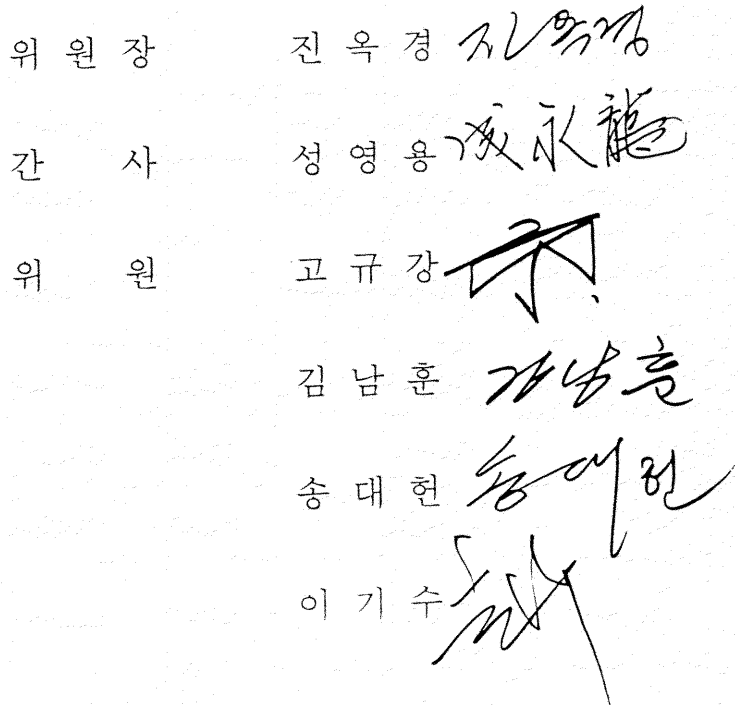 위 원 장 진 옥 경 진옥경
간 사 성 영 용 成永龍
위 원 고 규 강
김 남 훈 김남훈
송 대 헌 송대헌
이 기 수